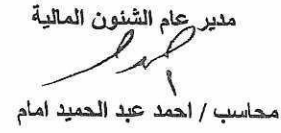 مدير عام الشئون المالية
محاسب / احمد عبد الحميد امام